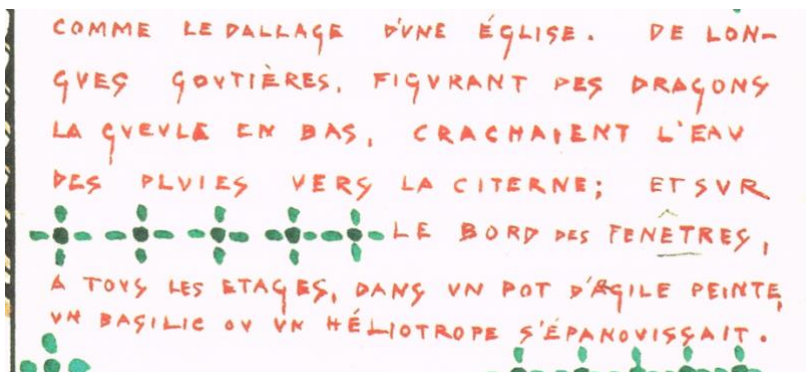 COMME LE DALLAGE D'VNE ÉGLISE. DE LON-
GVES GOVTIÈRES, FIGVRANT DES DRAGONS
LA GVEVLE EN BAS, CRACHAIENT L'EAV
DES PLVIES VERS LA CITERNE; ET SVR
LE BORD DES FENÊTRES,
A TOVS LES ETAGES, DANS VN POT D'ARGILE PEINTE,
VN BASILIC OV VN HÉLIOTROPE S'ÉPANOVISSAIT.